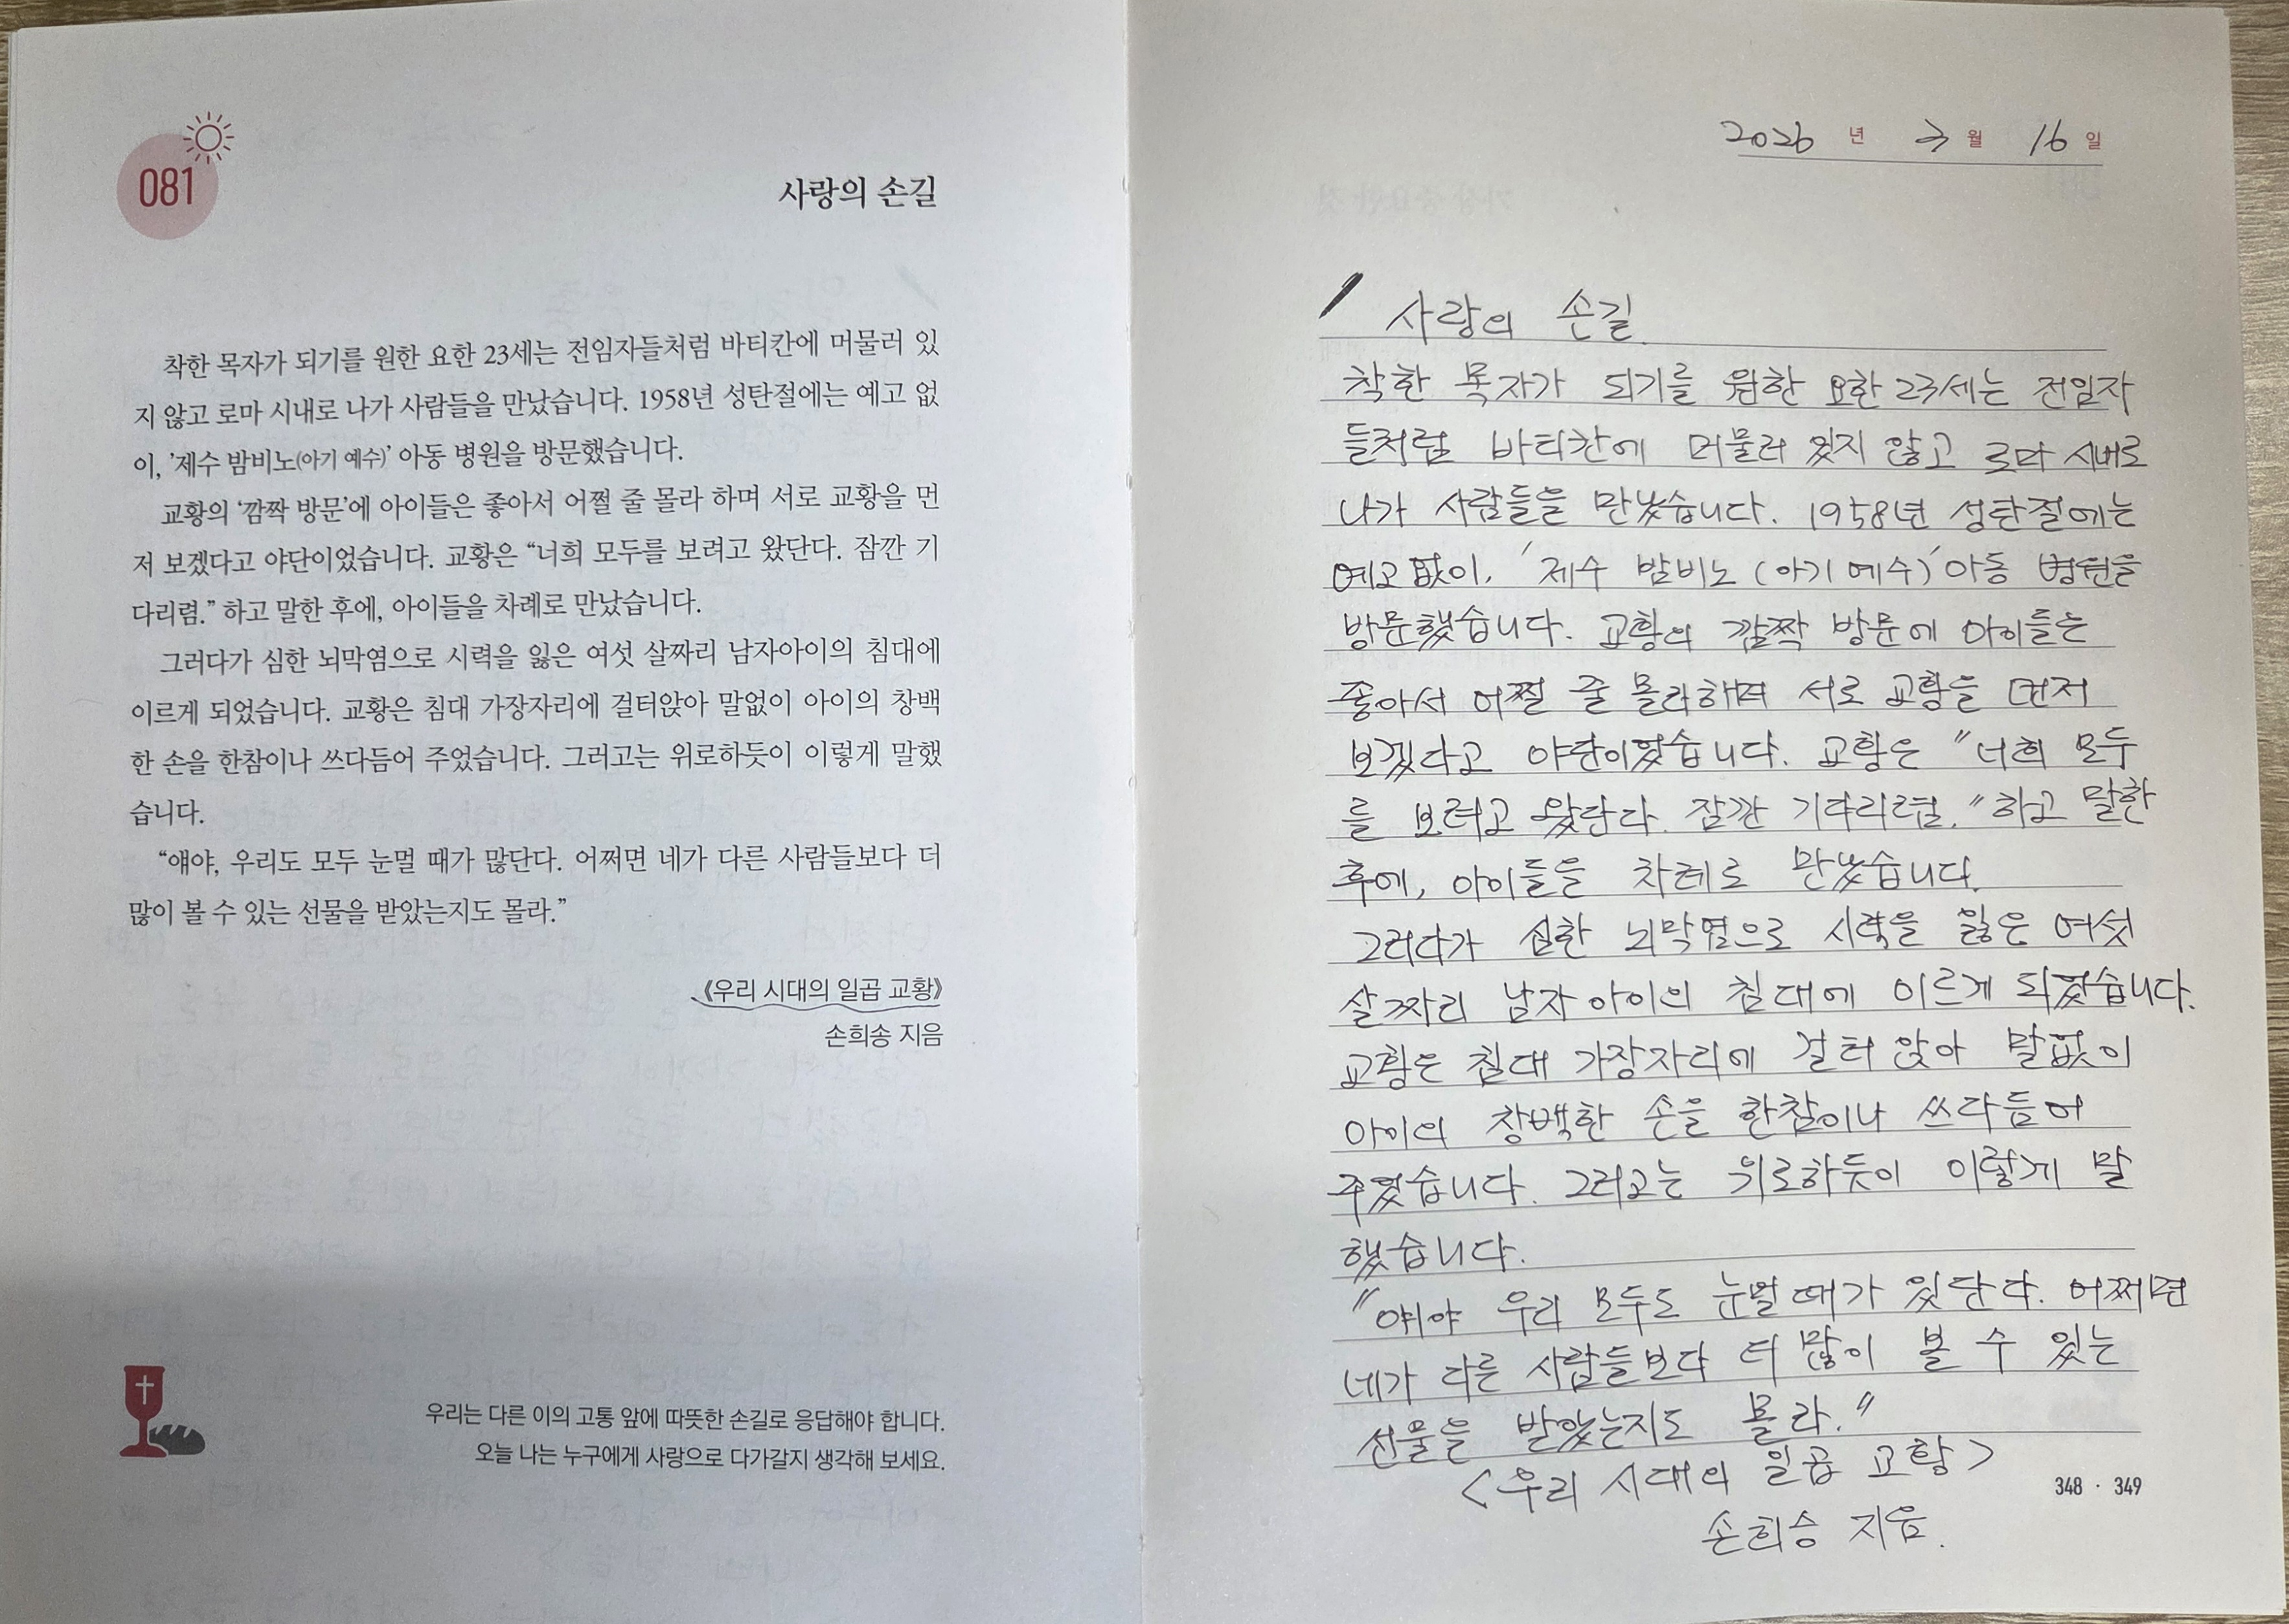 081
사랑의 손길
착한 목자가 되기를 원한 요한 23세는 전임자들처럼 바티칸에 머물러 있
지 않고 로마 시내로 나가 사람들을 만났습니다. 1958년 성탄절에는 예고 없
이, '제수 밤비노(아기 예수)' 아동 병원을 방문했습니다.
교황의 '깜짝 방문'에 아이들은 좋아서 어쩔 줄 몰라 하며 서로 교황을 먼
저 보겠다고 야단이었습니다. 교황은 “너희 모두를 보려고 왔단다. 잠깐 기
다리렴.” 하고 말한 후에, 아이들을 차례로 만났습니다.
그러다가 심한 뇌막염으로 시력을 잃은 여섯 살짜리 남자아이의 침대에
이르게 되었습니다. 교황은 침대 가장자리에 걸터앉아 말없이 아이의 창백
한 손을 한참이나 쓰다듬어 주었습니다. 그러고는 위로하듯이 이렇게 말했
습니다.
“얘야, 우리도 모두 눈멀 때가 많단다. 어쩌면 네가 다른 사람들보다 더
많이 볼 수 있는 선물을 받았는지도 몰라.”
《우리 시대의 일곱 교황》
손희송 지음
우리는 다른 이의 고통 앞에 따뜻한 손길로 응답해야 합니다.
오늘 나는 누구에게 사랑으로 다가갈지 생각해 보세요.
2026 년 3 월 16 일
사랑의 손길.
착한 목자가 되기를 원한 요한 23세는 전임자
들처럼 바티칸에 머물러 있지 않고 로마 시내로
나가 사람들을 만났습니다. 1958년 성탄절에는
예고 없이, '제수 밤비노 (아기 예수)' 아동 병원을
방문했습니다. 교황의 깜짝 방문에 아이들은
좋아서 어쩔 줄 몰라하며 서로 교황을 먼저
보겠다고 야단이었습니다. 교황은 "너희 모두
를 보려고 왔단다. 잠깐 기다리렴." 하고 말한
후에, 아이들을 차례로 만났습니다.
그러다가 심한 뇌막염으로 시력을 잃은 여섯
살짜리 남자 아이의 침대에 이르게 되었습니다.
교황은 침대 가장자리에 걸터 앉아 말없이
아이의 창백한 손을 한참이나 쓰다듬어
주었습니다. 그러고는 위로하듯이 이렇게 말
했습니다.
"얘야 우리 모두도 눈멀 때가 있단다. 어쩌면
네가 다른 사람들보다 더 많이 볼 수 있는
선물을 받았는지도 몰라."
<우리 시대의 일곱 교황>
손희승 지음.
348 · 349